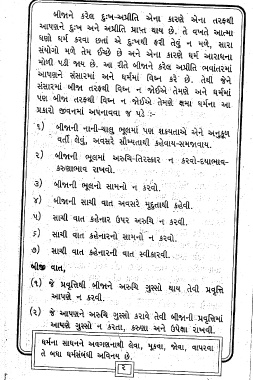 બીજાને કરેલ દુઃખ-અપ્રીતિ એના કારણે એના તરફથી
આપણને દુઃખ અને અપ્રીતિ પ્રાપ્ત થાય છે. તે વખતે આત્મા
ઘણો ધર્મ કરવા છતાં એ દુઃખથી ફરી તેવું ન મળે, સારા
સંયોગો મળે તેમ ઈચ્છે છે અને એના કારણે ધર્મ આરાધના
મોળી પડી જાય છે. આ રીતે બીજાને કરેલ અપ્રીતિ ભવાંતરમાં
આપણને સંસારમાં અને ધર્મમાં વિઘ્ન કરે છે. તેથી જેને
સંસારમાં બીજા તરફથી વિઘ્ન ન જોઈએ તેમણે અને ધર્મમાં
પણ બીજા તરફથી વિઘ્ન ન જોઈએ તેમણે ક્ષમા ધર્મના આ
પ્રકારો જીવનમાં અપનાવવા જ પડે :-
૧) બીજાની નાની-ચાલુ ભૂલમાં પણ શક્યતાએ એને અનુકૂળ
વર્તી લેવું, અવસરે સૌમ્યતાથી કહેવાય-સમજાવાય.
૨) બીજાની ભૂલમાં અરુચિ-તિરસ્કાર ન કરવો-દયાભાવ-
કરુણાભાવ રાખવો.
૩) બીજાની ભૂલનો સામનો ન કરવો.
૪) બીજાની સાચી વાત અવસરે મૃદુતાથી કહેવી.
૫) સાચી વાત કહેનાર ઉપર અરુચિ ન કરવી.
૬) સાચી વાત કહેનારનો સામનો ન કરવો.
૭) સાચી વાત કહેનારની વાત સ્વીકારવી.
બીજી વાત,
(૧) જે પ્રવૃત્તિથી બીજાને અરુચિ ગુસ્સો થાય તેવી પ્રવૃત્તિ
આપણે ન કરવી.
(૨) જે આપણને અરુચિ ગુસ્સો કરાવે તેવી બીજાની પ્રવૃત્તિમાં
આપણે ગુસ્સો ન કરતા, કરુણા અને ઉપેક્ષા રાખવી.
ધર્મના સાધનને અવગણનાથી લેવા, મૂકવા, જોવા, વાપરવા
તે બધા ધર્મસંબંધી અવિનય છે.
૬